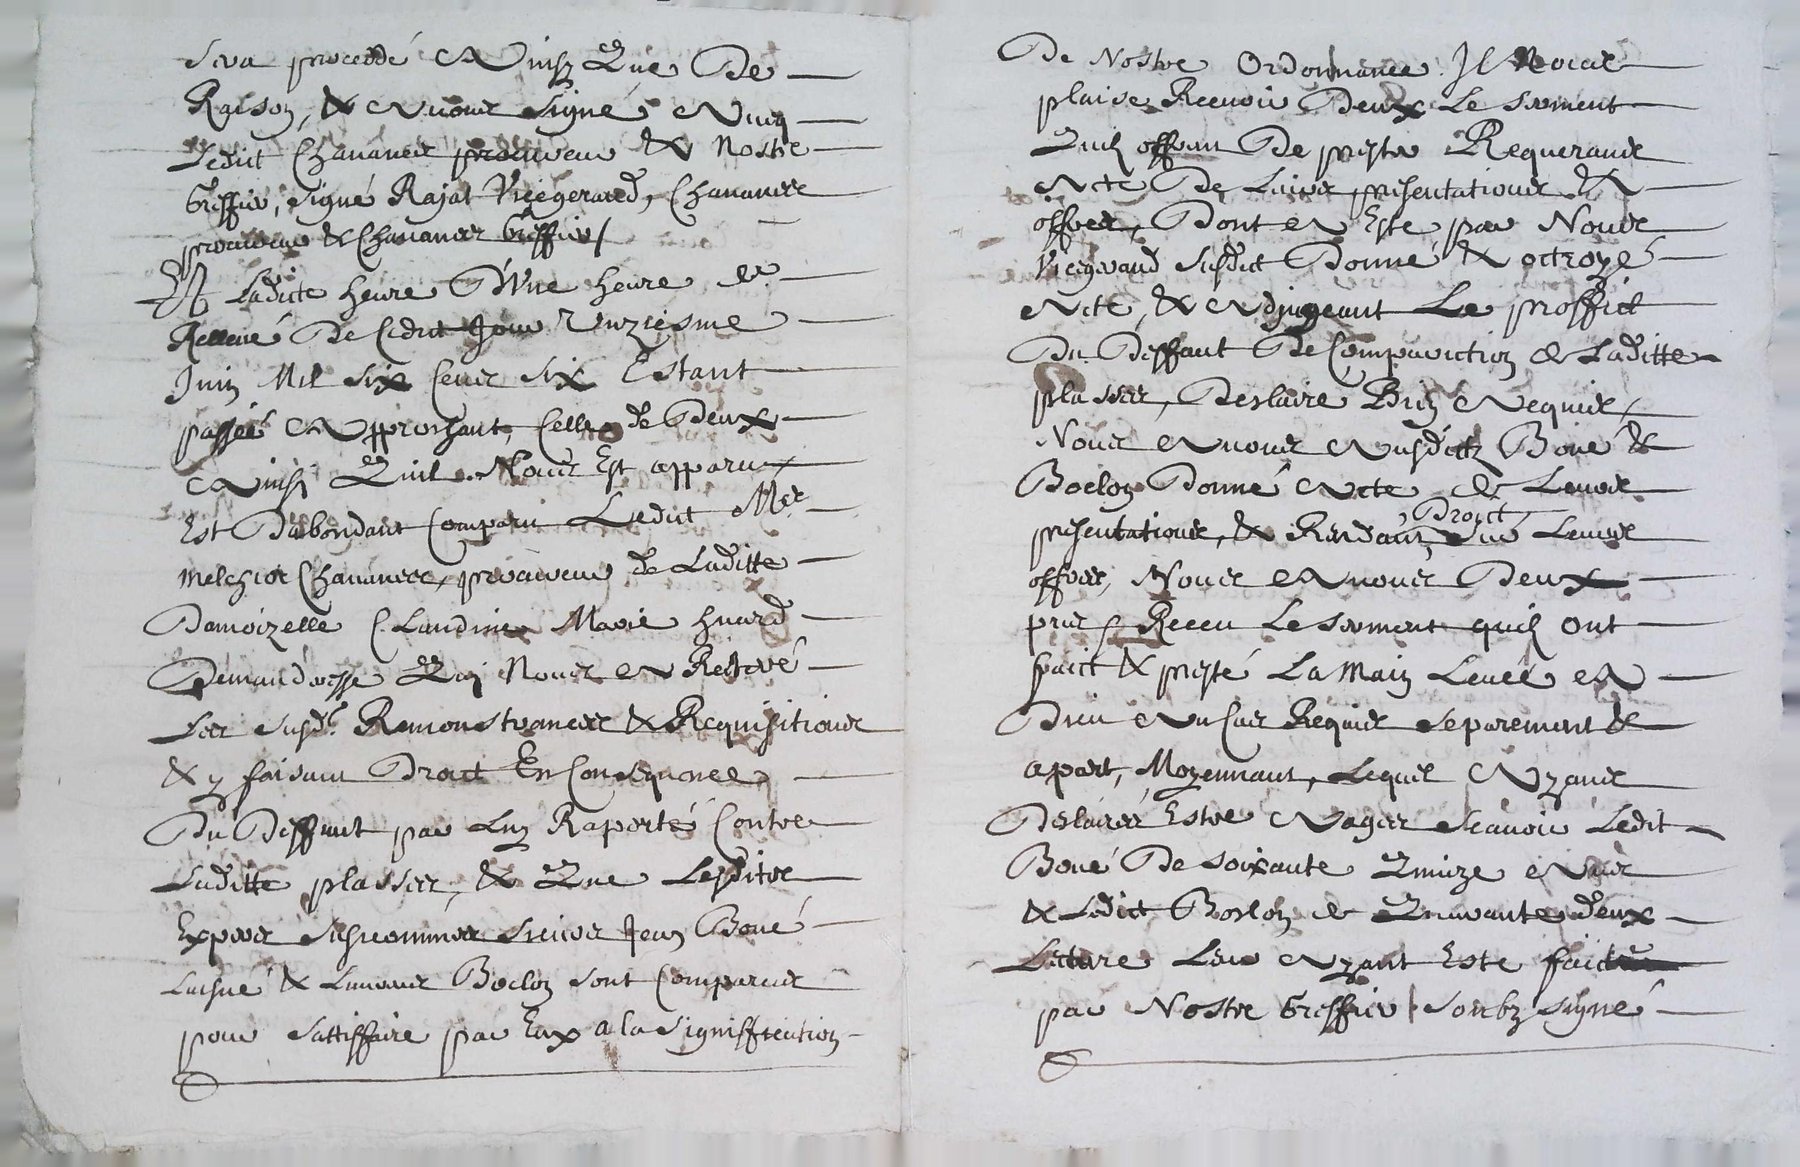 sera proceddé Ainsy Que De
Raison, & Avons signé Avecq
Ledict Chananeis procureur & Nostre
Greffier, signé Rajat Vicegerand, Chananeis
procureur & Chananeis Greffier/
Et Ladicte heure D'Une heure de
Rellevé De Cedict Jour Unziesme
Juin Mil six Cens six Estant
passée & Approchant, Celle de Deux
Ainsy Quil Nous Est apparu
Est Dabondant Comparu Ledict Me
Melchior Chananeis, procureur de Laditte
Damoizelle Claudine Marie huard
Demandresse Qui Nous a Reiteré
Les susd. Remonstrances & Requisitions
& y faisant Droict En Consequence
Du Deffaut par Luy Raporté Contre
Laditte plasses, & Que Lesdits
Expers susnommés sieurs Jean Boué
Laisné & Laurens Boclon sont Comparus
pour sattisffaire par Eux a la Signiffication
De Nostre Ordonnance. Il Nous
plaise Recevoir Deux Le serment
Quilz offrent De prester Requerans
Acte De Leurs presentations Et
offres, Dont A Este par Nous
Vicegerand susdict Donné & octroyé
Acte, & Adjugeant Le proffict
Du Deffaut De Comparuiction de Laditte
plasses, Desclaire Bien Acquis/
Nous Avons Ausdictz Boué &
Boclon Donné Acte de Leurs
presentations, & Rendant Droict sur Leurs
offres, Nous Avons Deux
pris & Receu Le serment quilz Ont
faict & presté La Main Levée A
Dieu Au Cas Requis separement &
apart, Moyennant, Lequel Ayans
Desclairés Estre Agés scavoir Ledit
Boué De soixante Quinze Ans
& Ledict Boclon de Quarante deux
Lecture Leur Ayant Este faicte
par Nostre Greffier soubz signé